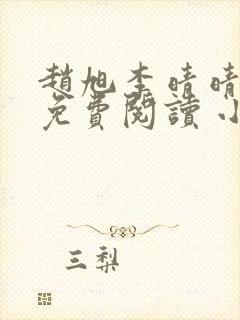 趙旭李晴晴
免費閱讀小
三梨